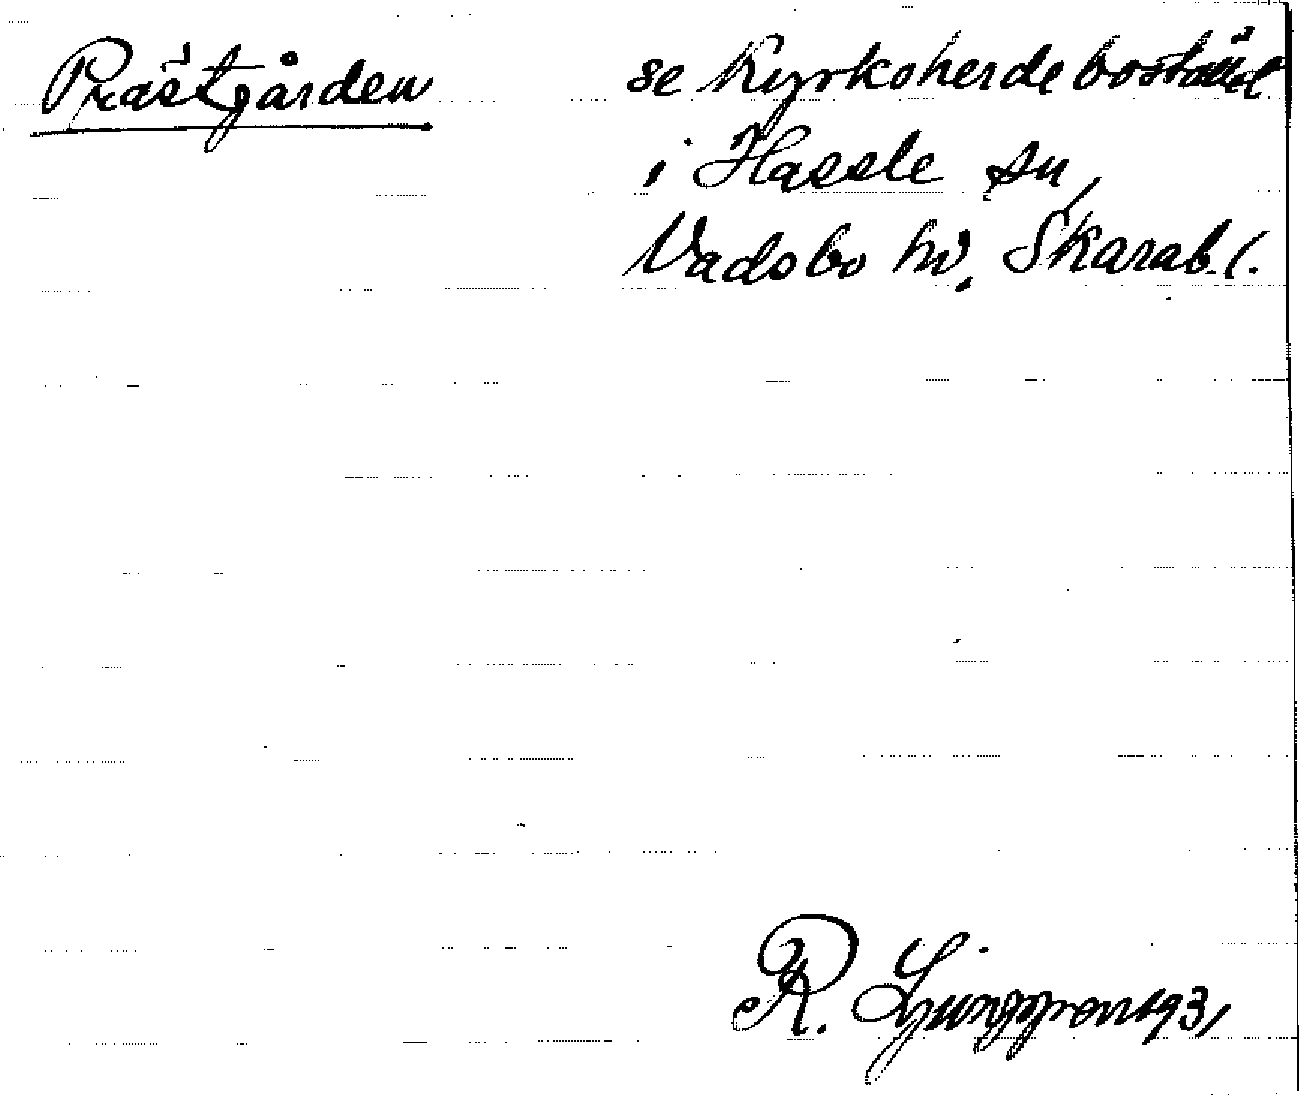 Prästgården se Kyrkoherdebostäl
i Hassle sn,
Vadsbo hd, Skarab. l.
R. Ljunggren 1931